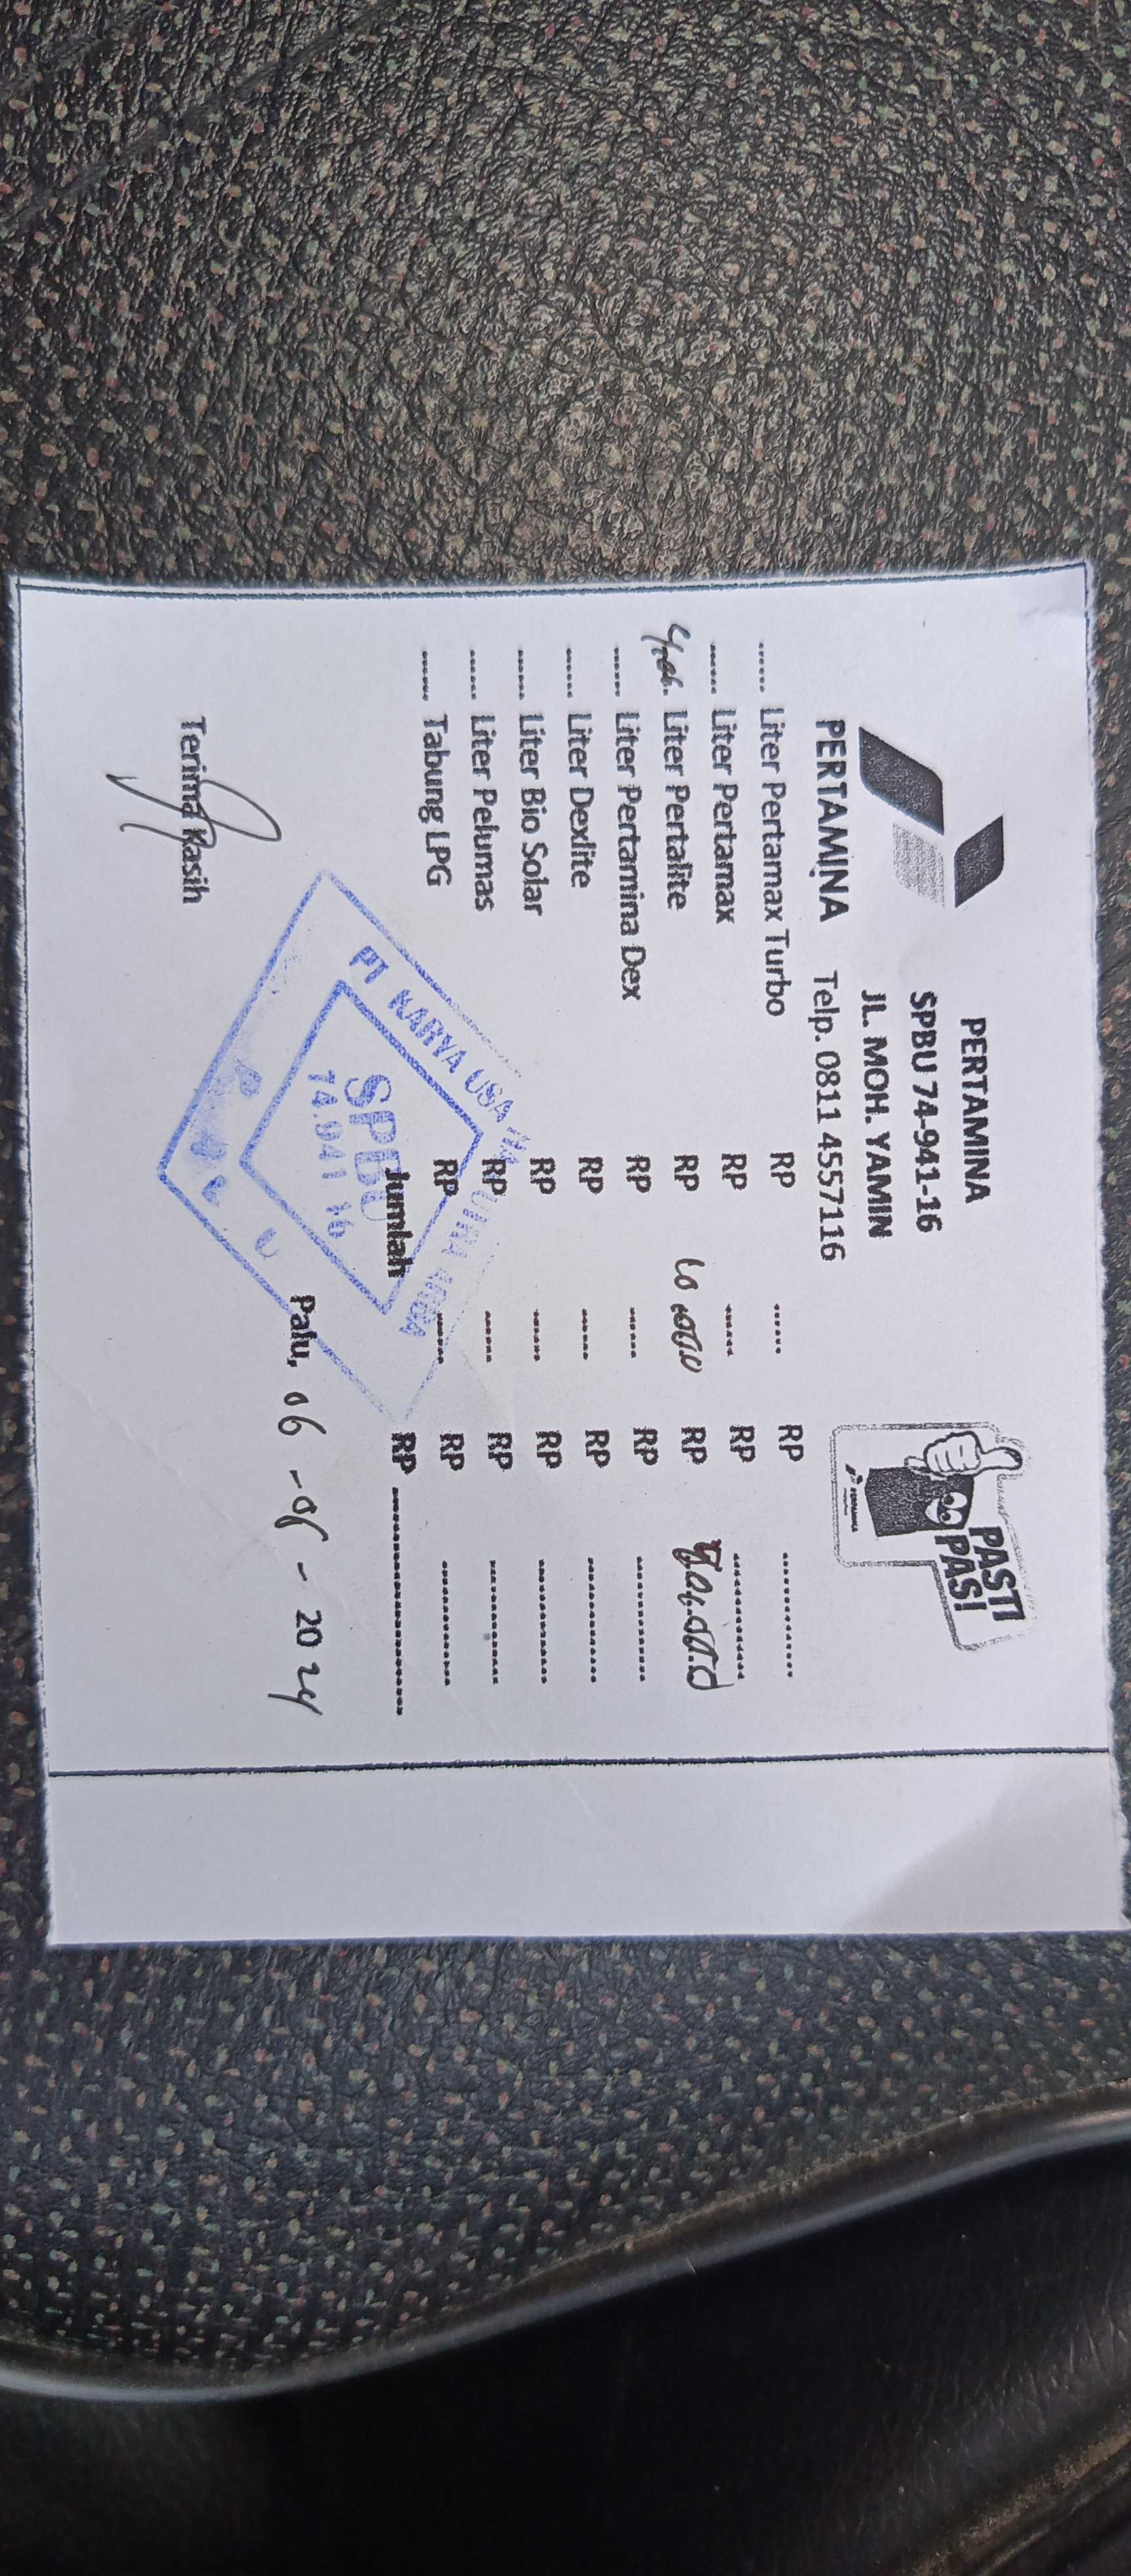 PERTAMINA
SPBU 74-941-16
JL. MOH. YAMIN
PERTAMINA Telp. 0811 4557116
PASTI
PAS!
...... Liter Pertamax Turbo RP ...... RP ..............
...... Liter Pertamax RP ...... RP ..............
Liter Pertalite RP RP
...... Liter Pertamina Dex RP ...... RP ..............
...... Liter Dexlite RP ...... RP ..............
...... Liter Bio Solar RP ...... RP ..............
...... Liter Pelumas RP ...... RP ..............
...... Tabung LPG RP ...... RP ..............
Jumlah RP ..........................
PT KARYA USAHA
SPBU
74.941 16
Palu, 06 - 06 - 2024
Terima Kasih